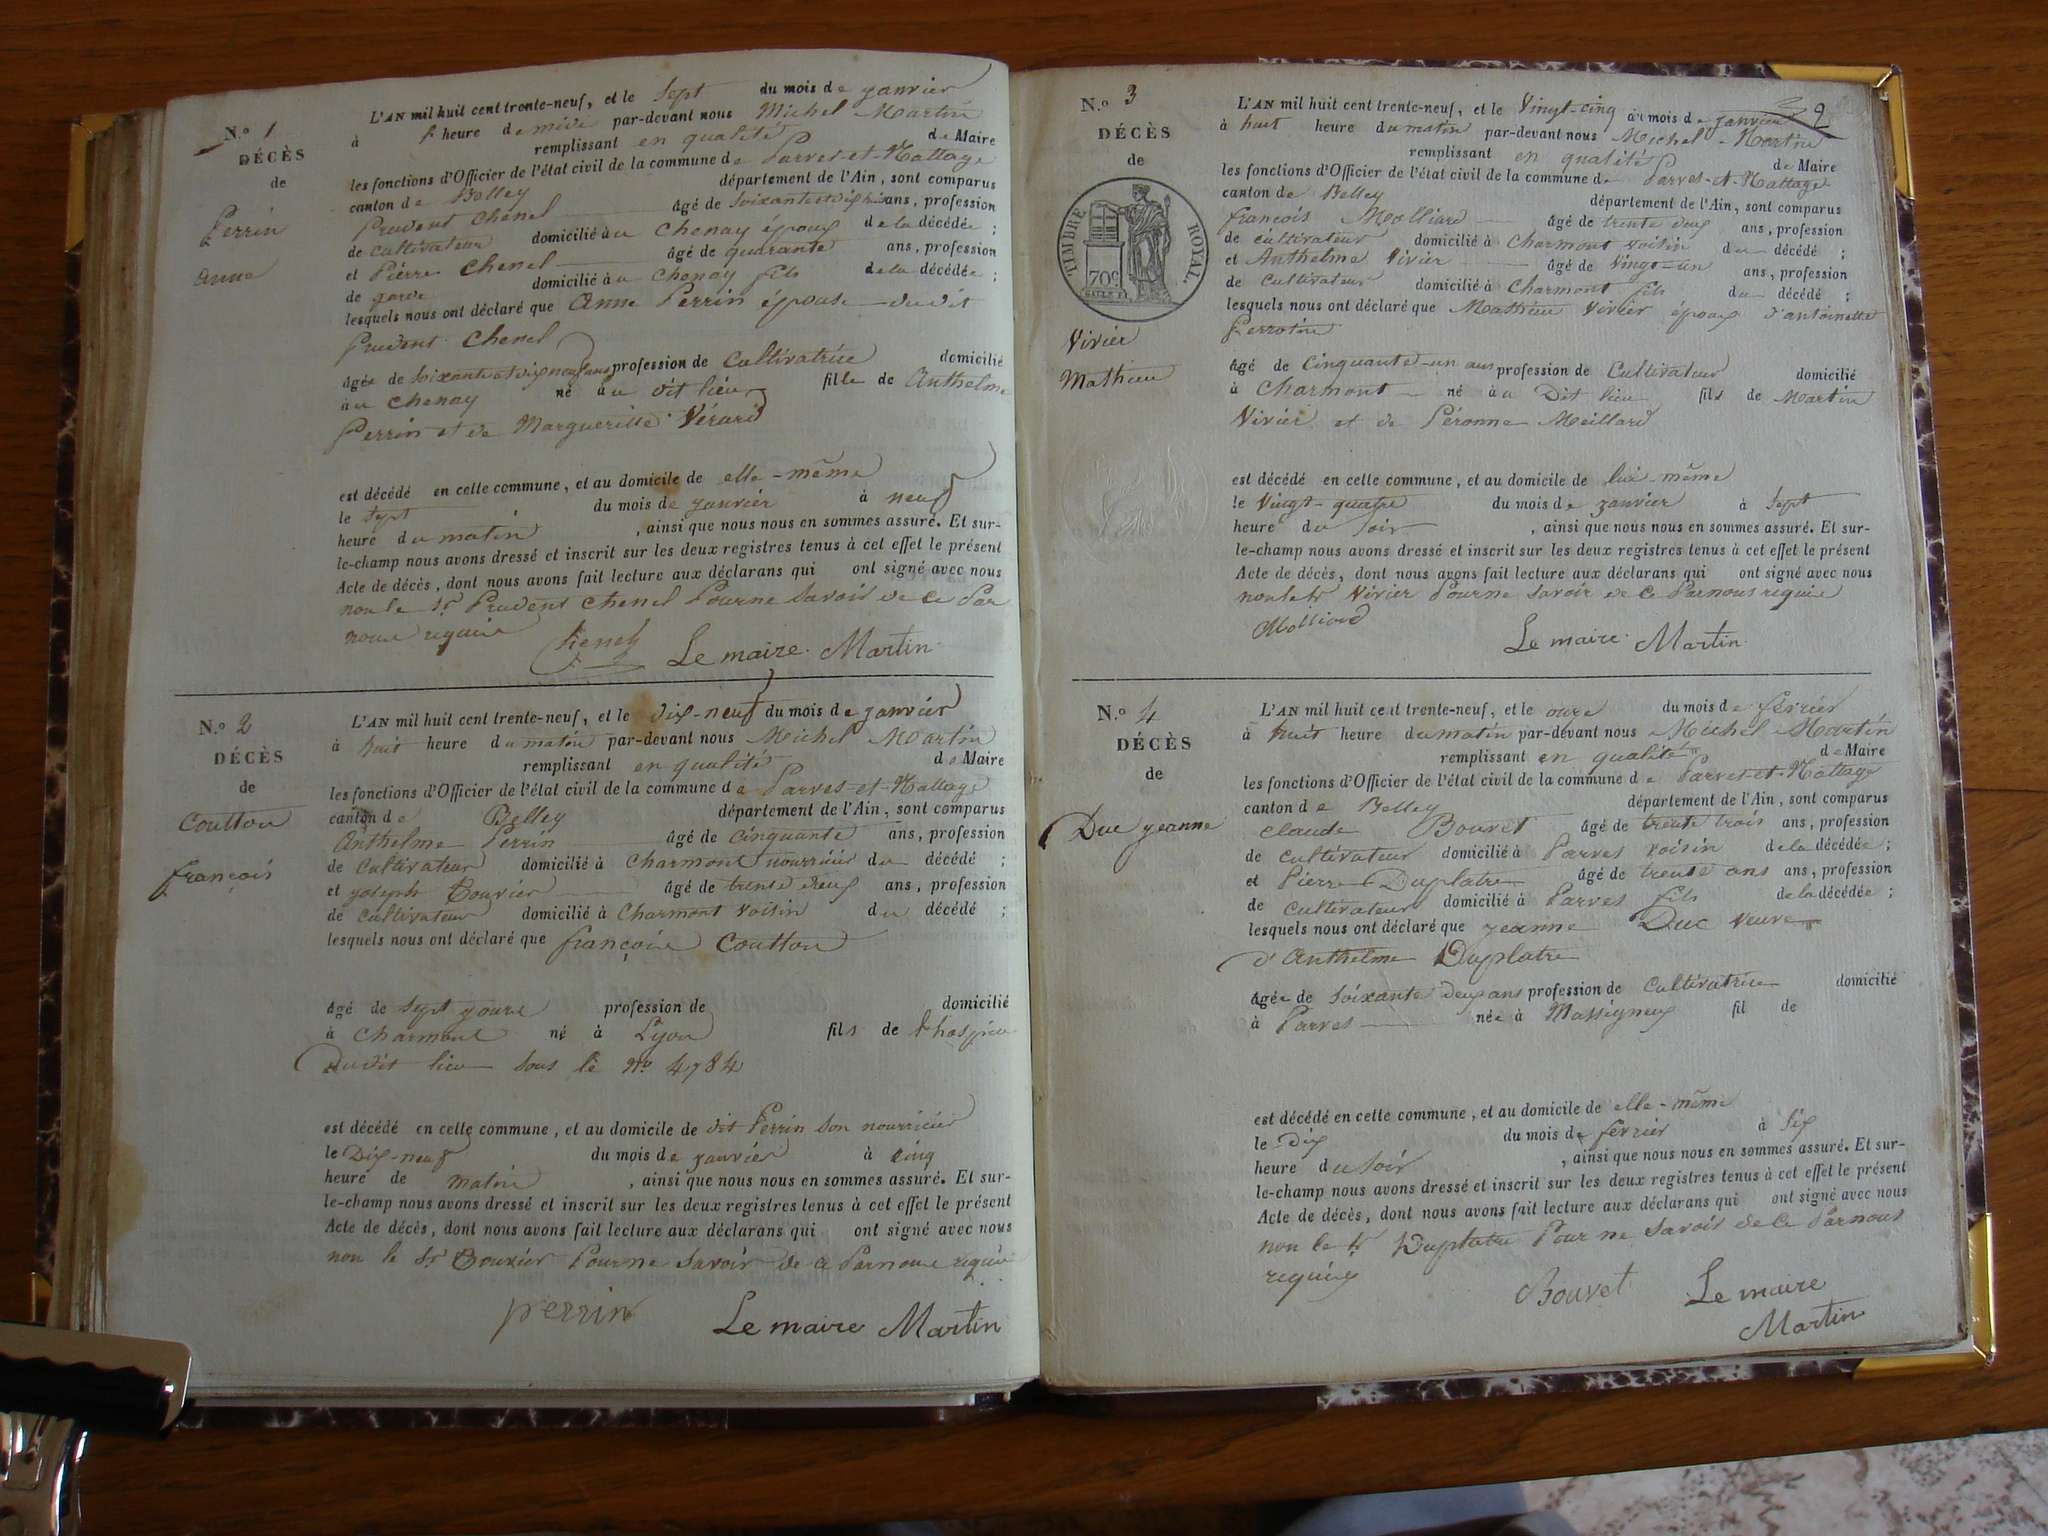 N.º 1
DÉCÈS
de
Perrin
anne
L'AN mil huit cent trente-neuf, et le sept du mois de janvier
à heure de par-devant nous Michel Martin
remplissant en qualité de Maire
les fonctions d'Officier de l'état civil de la commune de Parves-et-Nattage
canton de Belley département de l'Ain, sont comparus
Prudent Chenel âgé de ans, profession
de cultivateur domicilié au Chenay époux de la décédée ;
et Pierre Chenel âgé de quarante ans, profession
de garde domicilié au Chenay fils de la décédée ;
lesquels nous ont déclaré que Anne Perrin épouse dudit
Prudent Chenel
âgée de soixante et dix neuf ans profession de Cultivatrice domicilié
au Chenay né au dit lieu fille de Anthelme
Perrin et de Margueritte Vérard
est décédé en cette commune, et au domicile de elle-même
le sept du mois de janvier à neuf
heure du matin , ainsi que nous nous en sommes assuré. Et sur-
le-champ nous avons dressé et inscrit sur les deux registres tenus à cet effet le présent
Acte de décès, dont nous avons fait lecture aux déclarans qui ont signé avec nous
non le Sr Prudent Chenel Pour ne savoir de ce Par
nous requis
Le maire Martin
N.º 2
DÉCÈS
de
Coutton
françois
L'AN mil huit cent trente-neuf, et le dix-neuf du mois de janvier
à huit heure du matin par-devant nous Michel Martin
remplissant en qualité de Maire
les fonctions d'Officier de l'état civil de la commune de Parves-et-Nattage
canton de Belley département de l'Ain, sont comparus
Anthelme Perrin âgé de cinquante ans, profession
de cultivateur domicilié à Charmont nourricier du décédé ;
et joseph Bouvier âgé de trente deux ans, profession
de cultivateur domicilié à Charmont voisin du décédé ;
lesquels nous ont déclaré que françois Coutton
âgé de sept jours profession de domicilié
à Charmont né à Lyon fils de l'hospice
dudit lieu sous le No 4784
est décédé en cette commune, et au domicile de dit Perrin son nourricier
le Dix-neuf du mois de janvier à cinq
heure de matin , ainsi que nous nous en sommes assuré. Et sur-
le-champ nous avons dressé et inscrit sur les deux registres tenus à cet effet le présent
Acte de décès, dont nous avons fait lecture aux déclarans qui ont signé avec nous
non le Sr Bouvier Pour ne savoir de ce Par nous requis
perrin Le maire Martin
2
N.º 3
DÉCÈS
de
TIMBRE ROYAL
70c
Vivier
Mathieu
L'AN mil huit cent trente-neuf, et le Vingt-cinq du mois de janvier
à huit heure du matin par-devant nous Michel Martin
remplissant en qualité de Maire
les fonctions d'Officier de l'état civil de la commune de Parves-et-Nattage
canton de Belley département de l'Ain, sont comparus
françois Molliard âgé de trente deux ans, profession
de cultivateur domicilié à Charmont voisin du décédé ;
et Anthelme Vivier âgé de Vingt-un ans, profession
de Cultivateur domicilié à Charmont fils du décédé ;
lesquels nous ont déclaré que Mathieu Vivier époux d'antoinette
Perrotin
âgé de Cinquante-un ans profession de Cultivateur domicilié
à Charmont né au Dit lieu fils de Martin
Vivier et de Péronne Meillard
est décédé en cette commune, et au domicile de lui-même
le Vingt-quatre du mois de janvier à Sept
heure du soir , ainsi que nous nous en sommes assuré. Et sur-
le-champ nous avons dressé et inscrit sur les deux registres tenus à cet effet le présent
Acte de décès, dont nous avons fait lecture aux déclarans qui ont signé avec nous
non le Sr Vivier Pour ne savoir de ce Par nous requis
Molliard
Le maire Martin
N.º 4
DÉCÈS
de
Duc jeanne
L'AN mil huit cent trente-neuf, et le onze du mois de février
à huit heure du matin par-devant nous Michel Martin
remplissant en qualité de Maire
les fonctions d'Officier de l'état civil de la commune de Parves-et-Nattage
canton de Belley département de l'Ain, sont comparus
claude Bouvet âgé de trente trois ans, profession
de cultivateur domicilié à Parves voisin de la décédée ;
et Pierre Duplatre âgé de trente ans ans, profession
de cultivateur domicilié à Parves fils de la décédée ;
lesquels nous ont déclaré que jeanne Duc veuve
d'Anthelme Duplatre
âgée de soixante deux ans profession de Cultivatrice domicilié
à Parves née à Massigneux fil de
est décédé en cette commune, et au domicile de elle-même
le Dix du mois de février à six
heure du soir , ainsi que nous nous en sommes assuré. Et sur-
le-champ nous avons dressé et inscrit sur les deux registres tenus à cet effet le présent
Acte de décès, dont nous avons fait lecture aux déclarans qui ont signé avec nous
non le Sr Duplatre Pour ne savoir de ce Par nous
requis
Bouvet Le maire
Martin